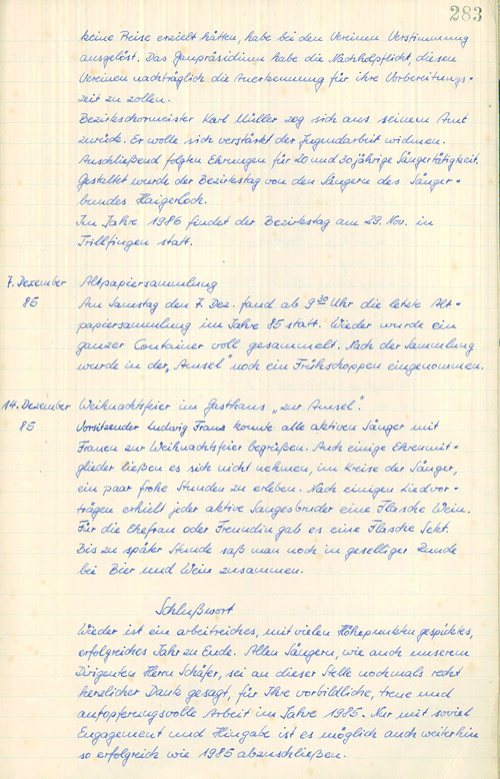 283
keine Preise erzielt hätten, habe bei den Vereinen Verstimmung
ausgelöst. Das Gaupräsidium habe die Nachholpflicht, diesen
Vereinen nachträglich die Anerkennung für ihre Vorbereitungs-
zeit zu zollen.
Bezirkschormeister Karl Müller zog sich aus seinem Amt
zurück. Er wolle sich verstärkt der Jugendarbeit widmen.
Anschließend folgten Ehrungen für 20 und 30 jährige Sängertätigkeit.
Gestaltet wurde der Bezirkstag von den Sängern des Sänger-
bundes Haigerloch.
Im Jahre 1986 findet der Bezirkstag am 29. Nov. in
Trillfingen statt.
7. Dezember Altpapiersammlung
85 Am Samstag den 7. Dez. fand ab 9³⁰ Uhr die letzte Alt-
papiersammlung im Jahre 85 statt. Wieder wurde ein
ganzer Container voll gesammelt. Nach der Sammlung
wurde in der „Amsel" noch ein Frühschoppen eingenommen.
14. Dezember Weihnachtsfeier im Gasthaus „zur Amsel".
85 Vorsitzender Ludwig Franz konnte alle aktiven Sänger mit
Frauen zur Weihnachtsfeier begrüßen. Auch einige Ehrenmit-
glieder ließen es sich nicht nehmen, im Kreise der Sänger,
ein paar frohe Stunden zu erleben. Nach einigen Liedvor-
trägen erhielt jeder aktive Sangesbruder eine Flasche Wein.
Für die Ehefrau oder Freundin gab es eine Flasche Sekt.
Bis zu später Stunde saß man noch in geselliger Runde
bei Bier und Wein zusammen.
Schlußwort
Wieder ist ein arbeitreiches, mit vielen Höhepunkten gespicktes,
erfolgreiches Jahr zu Ende. Allen Sängern, wie auch unserem
Dirigenten Herrn Schäfer, sei an dieser Stelle nochmals recht
herzlicher Dank gesagt, für Ihre vorbildliche, treue und
aufopferungsvolle Arbeit im Jahre 1985. Nur mit soviel
Engagement und Hingabe ist es möglich auch weiterhin
so erfolgreich wie 1985 abzuschließen.